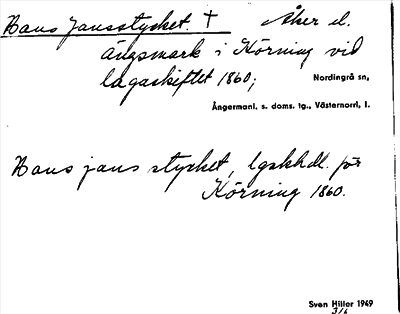 Hans Jansstycket. † Åker el.
ängsmark i Körning vid
lagaskiftet 1860; Nordingrå sn,
Ångermanl. s. doms. tg., Västernorrl. l.
Hans jans stycket, lgskhdl. för
Körning 1860.
Sven Hiller 1949
3/6